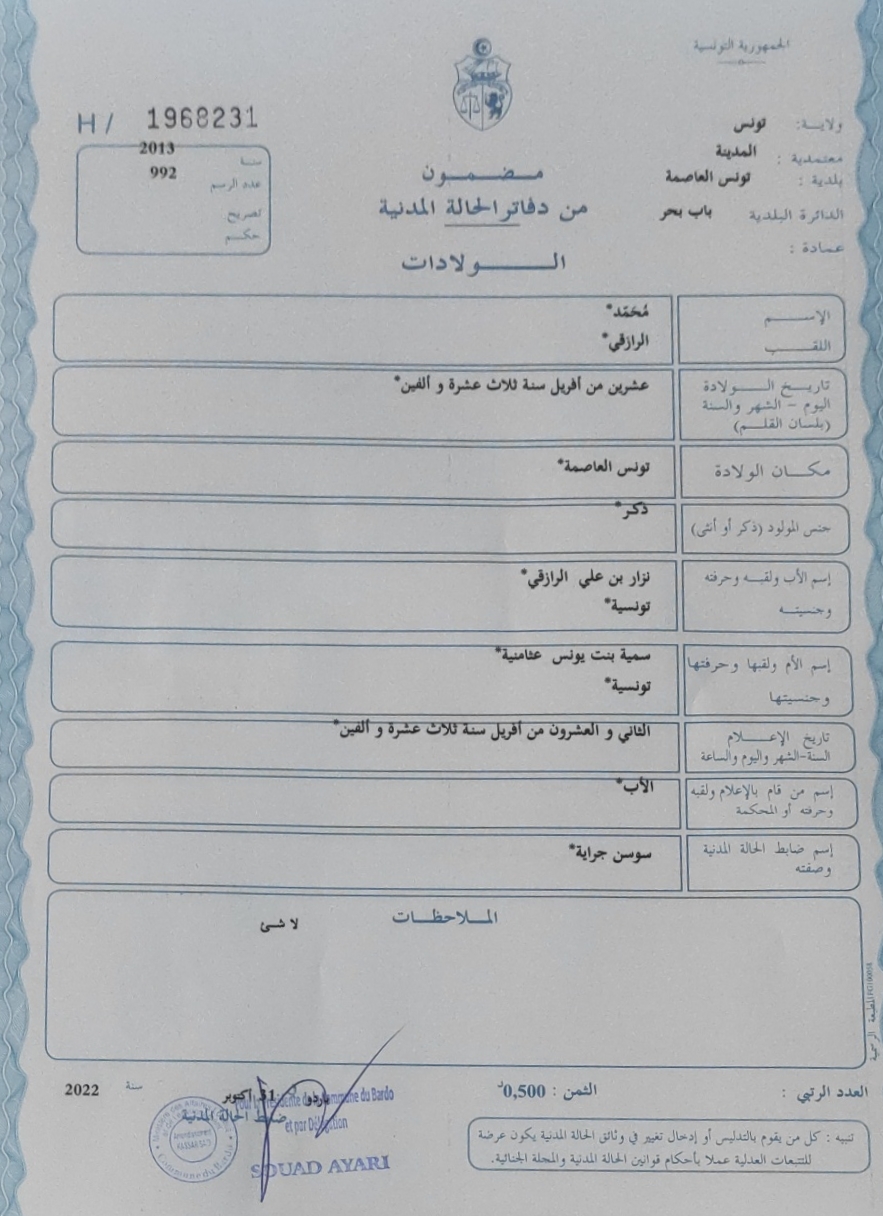 الجمهورية التونسية
H / 1968231
ولايـة: تونس
معتمدية : المدينة
بلدية : تونس العاصمة
الدائرة البلدية باب بحر
عمادة :
سنة 2013
عدد الرسم 992
تصريح
حكـــم
مـــضـــمـــون
من دفاتر الحالة المدنية
الـــــولادات
الإســــم مُحَمّد*
اللقــــب الرازقي*
تاريــخ الـــولادة
اليوم – الشهر والسنة
(بلسان القلـــم)
عشرين من أفريل سنة ثلاث عشرة و ألفين*
مكـــان الولادة تونس العاصمة*
جنس المولود (ذكر أو أنثى) ذكر*
إسم الأب ولقبـه وحرفته نزار بن علي الرازقي*
وجنسيتــه تونسية*
إسم الأم ولقبها وحرفتها سمية بنت يونس عثامنية*
وجنسيتها تونسية*
تاريخ الإعـــلام
السنة-الشهر واليوم والساعة
الثاني و العشرون من أفريل سنة ثلاث عشرة و ألفين*
إسم من قام بالإعلام ولقبه
وحرفته أو المحكمة
الأب*
إسم ضابط الحالة المدنية
وصفته
سوسن جراية*
الملاحظــات
لا شئ
المطبعة الرسمية
العدد الرتبي :
الثمن : 0,500د
باردو في 31 أكتوبر سنة 2022
ضـابط الحالة المدنية
Pour la Présidente de la Commune du Bardo
et par Délégation
SOUAD AYARI
Commune du Bardo
تنبيه : كل من يقوم بالتدليس أو إدخال تغيير في وثائق الحالة المدنية يكون عرضة
للتتبعات العدلية عملا بأحكام قوانين الحالة المدنية والمجلة الجنائية.